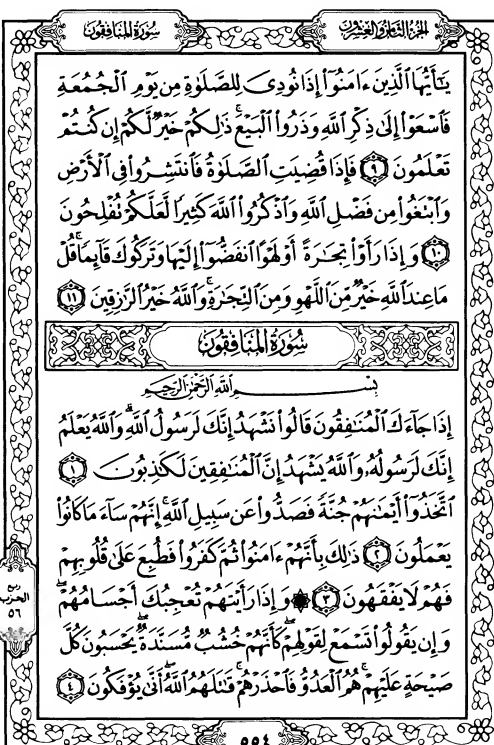 سُورَةُ المُنَافِقُونَ
الجُزْءُ الثَّامِنُ وَالعِشْرُونَ
يَٰٓأَيُّهَا ٱلَّذِينَ ءَامَنُوٓاْ إِذَا نُودِيَ لِلصَّلَوٰةِ مِن يَوْمِ ٱلْجُمُعَةِ
فَٱسْعَوْاْ إِلَىٰ ذِكْرِ ٱللَّهِ وَذَرُواْ ٱلْبَيْعَۚ ذَٰلِكُمْ خَيْرٌ لَّكُمْ إِن كُنتُمْ
تَعْلَمُونَ ٩ فَإِذَا قُضِيَتِ ٱلصَّلَوٰةُ فَٱنتَشِرُواْ فِي ٱلْأَرْضِ
وَٱبْتَغُواْ مِن فَضْلِ ٱللَّهِ وَٱذْكُرُواْ ٱللَّهَ كَثِيرًا لَّعَلَّكُمْ تُفْلِحُونَ
١٠ وَإِذَا رَأَوْاْ تِجَٰرَةً أَوْ لَهْوًا ٱنفَضُّوٓاْ إِلَيْهَا وَتَرَكُوكَ قَآئِمًاۚ قُلْ
مَا عِندَ ٱللَّهِ خَيْرٌ مِّنَ ٱللَّهْوِ وَمِنَ ٱلتِّجَٰرَةِۚ وَٱللَّهُ خَيْرُ ٱلرَّٰزِقِينَ ١١
سُورَةُ المُنَافِقُونَ
بِسْمِ ٱللَّهِ ٱلرَّحْمَٰنِ ٱلرَّحِيمِ
إِذَا جَآءَكَ ٱلْمُنَٰفِقُونَ قَالُواْ نَشْهَدُ إِنَّكَ لَرَسُولُ ٱللَّهِۗ وَٱللَّهُ يَعْلَمُ
إِنَّكَ لَرَسُولُهُۥ وَٱللَّهُ يَشْهَدُ إِنَّ ٱلْمُنَٰفِقِينَ لَكَٰذِبُونَ ١
ٱتَّخَذُوٓاْ أَيْمَٰنَهُمْ جُنَّةً فَصَدُّواْ عَن سَبِيلِ ٱللَّهِۚ إِنَّهُمْ سَآءَ مَا كَانُواْ
يَعْمَلُونَ ٢ ذَٰلِكَ بِأَنَّهُمْ ءَامَنُواْ ثُمَّ كَفَرُواْ فَطُبِعَ عَلَىٰ قُلُوبِهِمْ
فَهُمْ لَا يَفْقَهُونَ ٣ ۞ وَإِذَا رَأَيْتَهُمْ تُعْجِبُكَ أَجْسَامُهُمْۖ
وَإِن يَقُولُواْ تَسْمَعْ لِقَوْلِهِمْۖ كَأَنَّهُمْ خُشُبٌ مُّسَنَّدَةٌۖ يَحْسَبُونَ كُلَّ
صَيْحَةٍ عَلَيْهِمْۚ هُمُ ٱلْعَدُوُّ فَٱحْذَرْهُمْۚ قَٰتَلَهُمُ ٱللَّهُۖ أَنَّىٰ يُؤْفَكُونَ ٤
ربع
الحزب
٥٦
٥٥٤